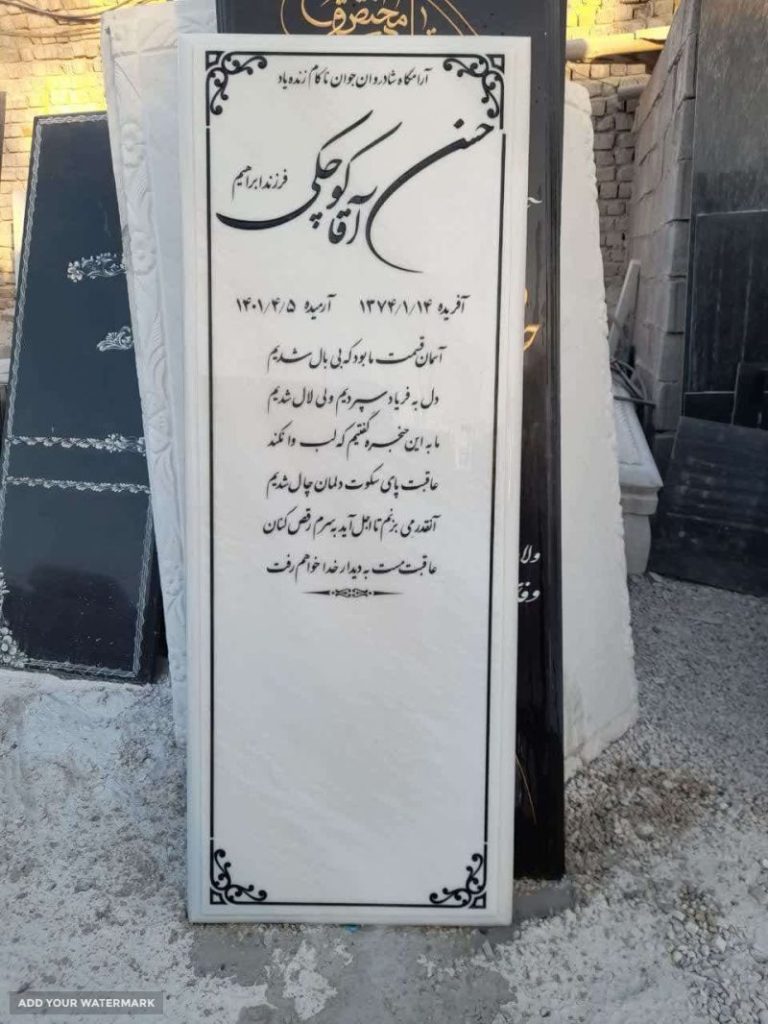 محتضر
آرامگاه شادروان جوان ناکام زنده یاد
حسن آقا کوچکی
فرزند ابراهیم
آفریده ۱۳۷۴/۱/۱۴ آرمیده ۱۴۰۱/۴/۵
آسمان قیمت ما بود که بی بال شدیم
دل به فریاد سپردیم ولی لال شدیم
ما به این حنجره گفتیم که لب وا نکند
عاقبت پای سکوت دلمان چال شدیم
آنقدر می بزنم تا اجل آید به سرم رقص کنان
عاقبت مست به دیدار خدا خواهم رفت
ولا
وفا
ADD YOUR WATERMARK